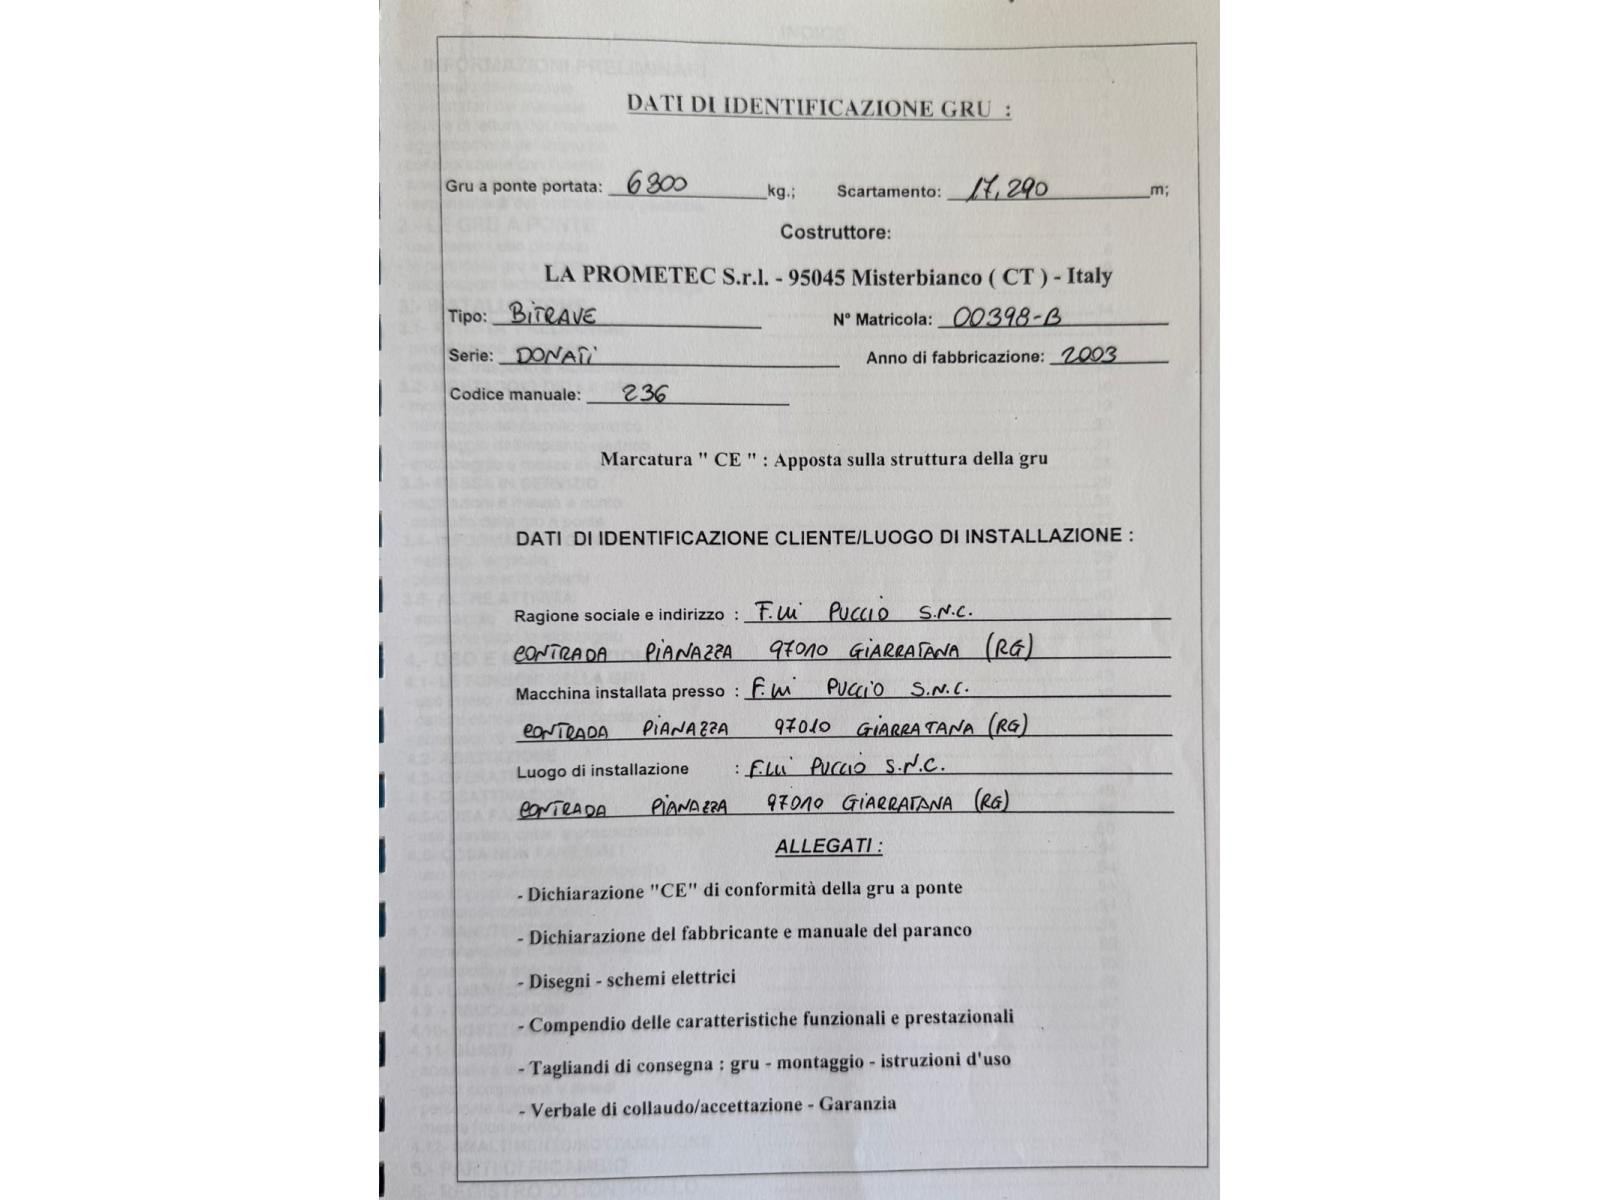 DATI DI IDENTIFICAZIONE GRU :
Gru a ponte portata: 6300 kg.; Scartamento: 17,290 m;
Costruttore:
LA PROMETEC S.r.l. - 95045 Misterbianco ( CT ) - Italy
Tipo: BiTRAVE N° Matricola: 00398-B
Serie: DONATi Anno di fabbricazione: 2003
Codice manuale: 236
Marcatura " CE " : Apposta sulla struttura della gru
DATI DI IDENTIFICAZIONE CLIENTE/LUOGO DI INSTALLAZIONE :
Ragione sociale e indirizzo : F.lli PUCCIO S.N.C.
CONTRADA PiANAZZA 97010 GiARRATANA (RG)
Macchina installata presso : F.lli PUCCiO S.N.C.
CONTRADA PiANAZZA 97010 GiARRATANA (RG)
Luogo di installazione : F.lli PUCCIO S.N.C.
CONTRADA PiANAZZA 97010 GiARRATANA (RG)
ALLEGATI :
- Dichiarazione "CE" di conformità della gru a ponte
- Dichiarazione del fabbricante e manuale del paranco
- Disegni - schemi elettrici
- Compendio delle caratteristiche funzionali e prestazionali
- Tagliandi di consegna : gru - montaggio - istruzioni d'uso
- Verbale di collaudo/accettazione - Garanzia